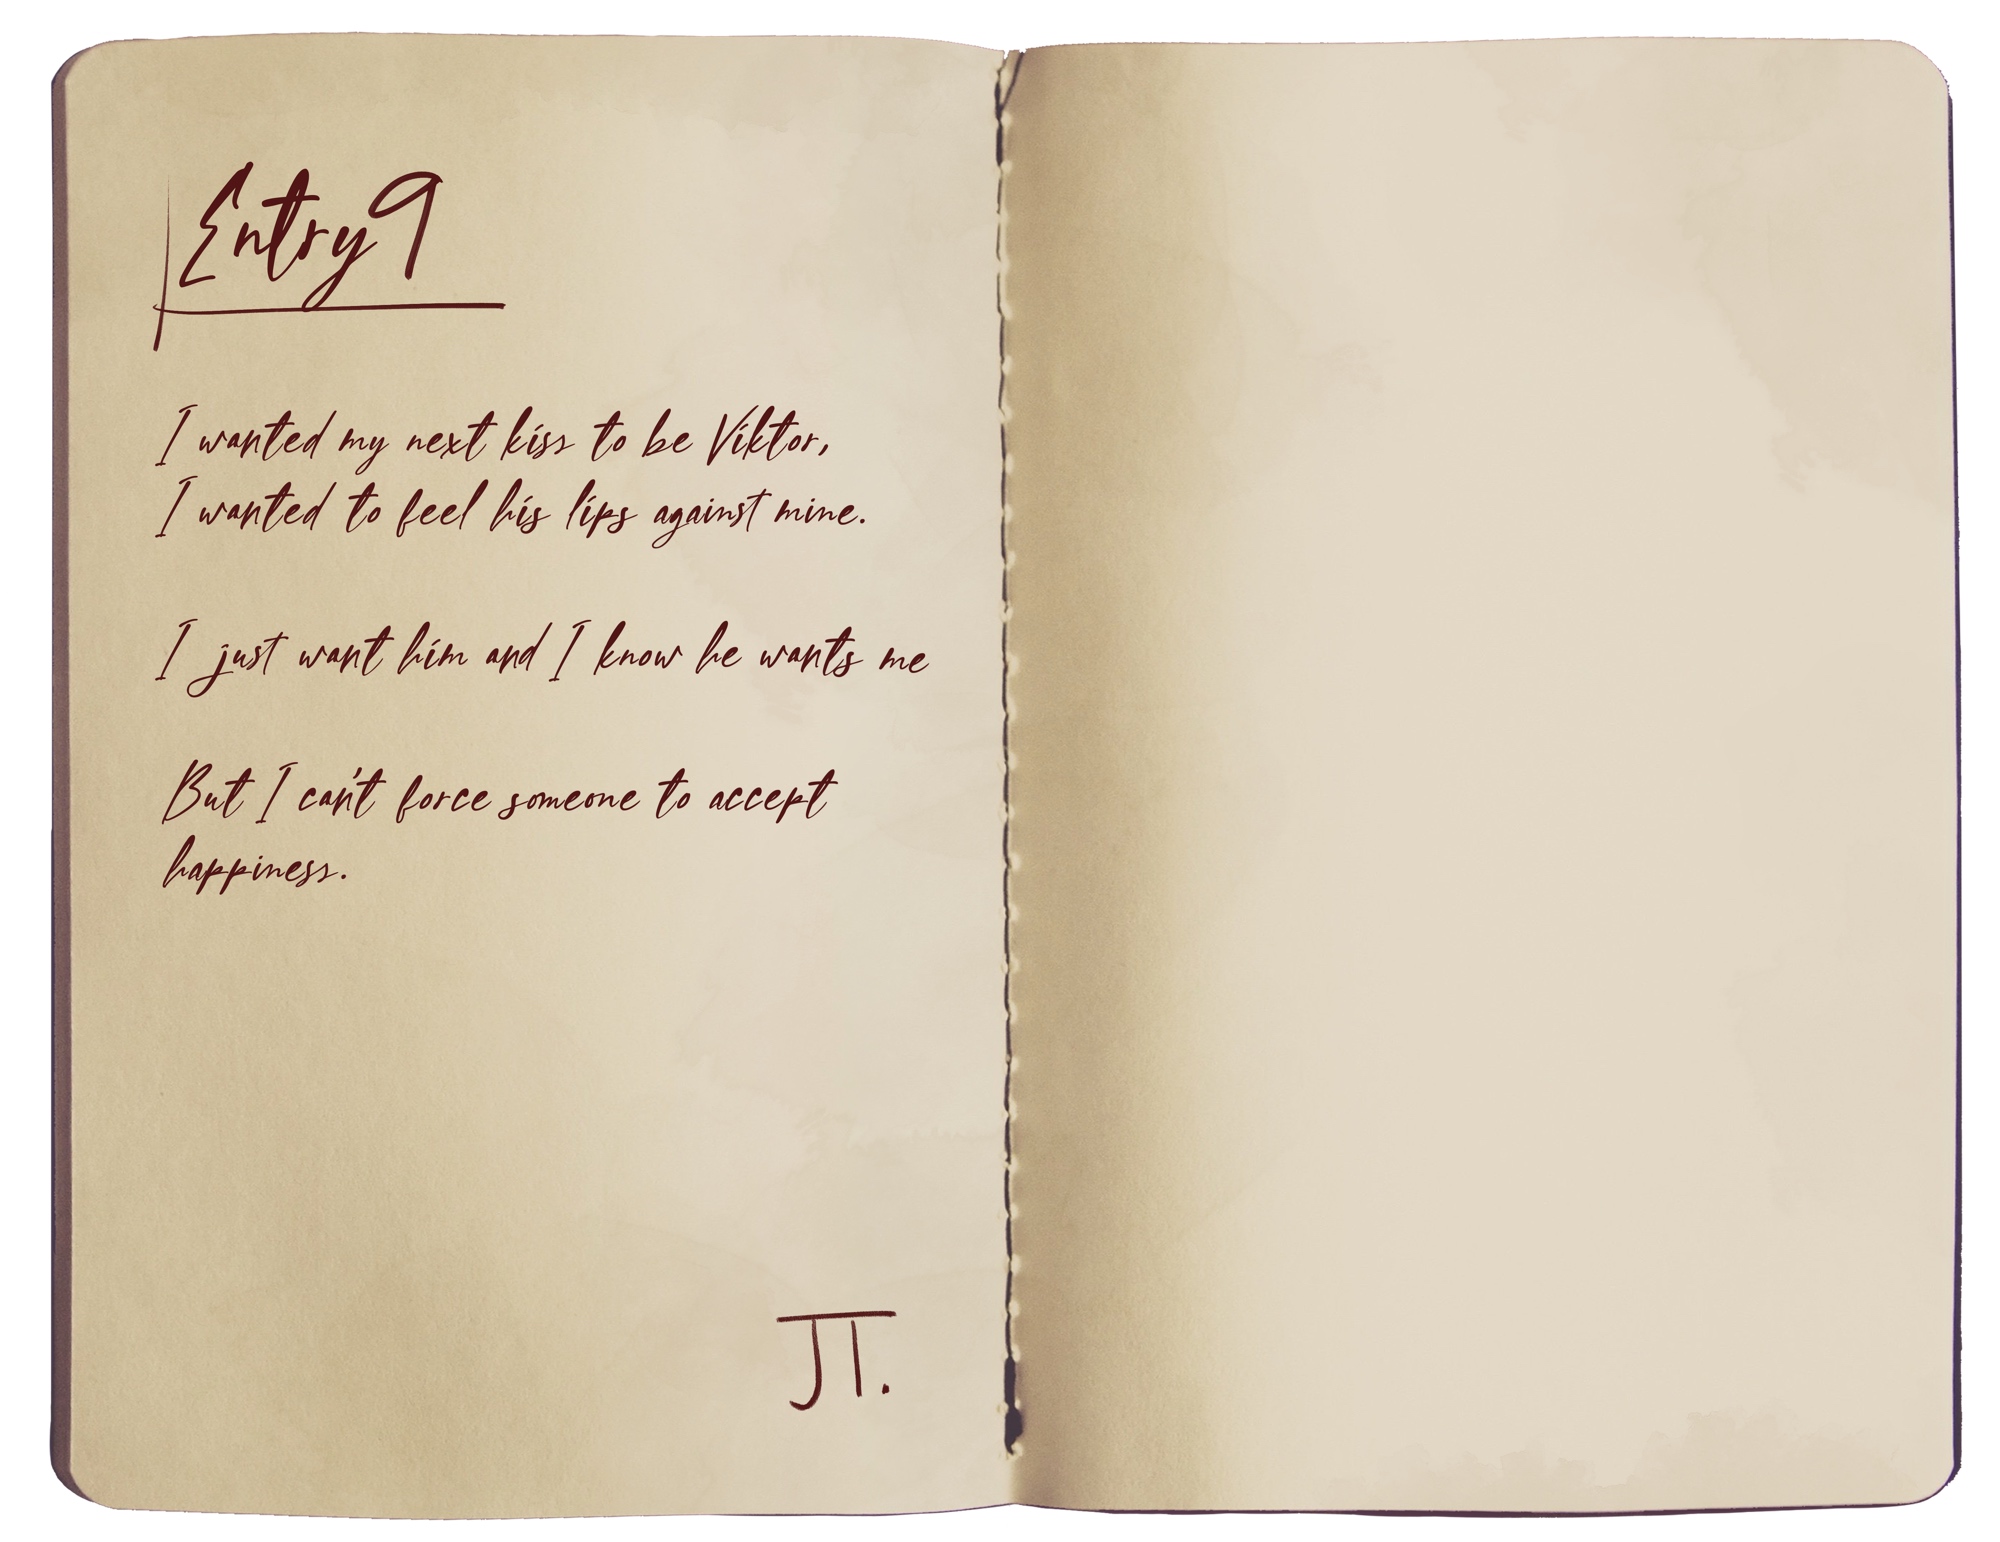 Entry 9
I wanted my next kiss to be Viktor,
I wanted to feel his lips against mine.
I just want him and I know he wants me
But I can't force someone to accept
happiness.
JT.